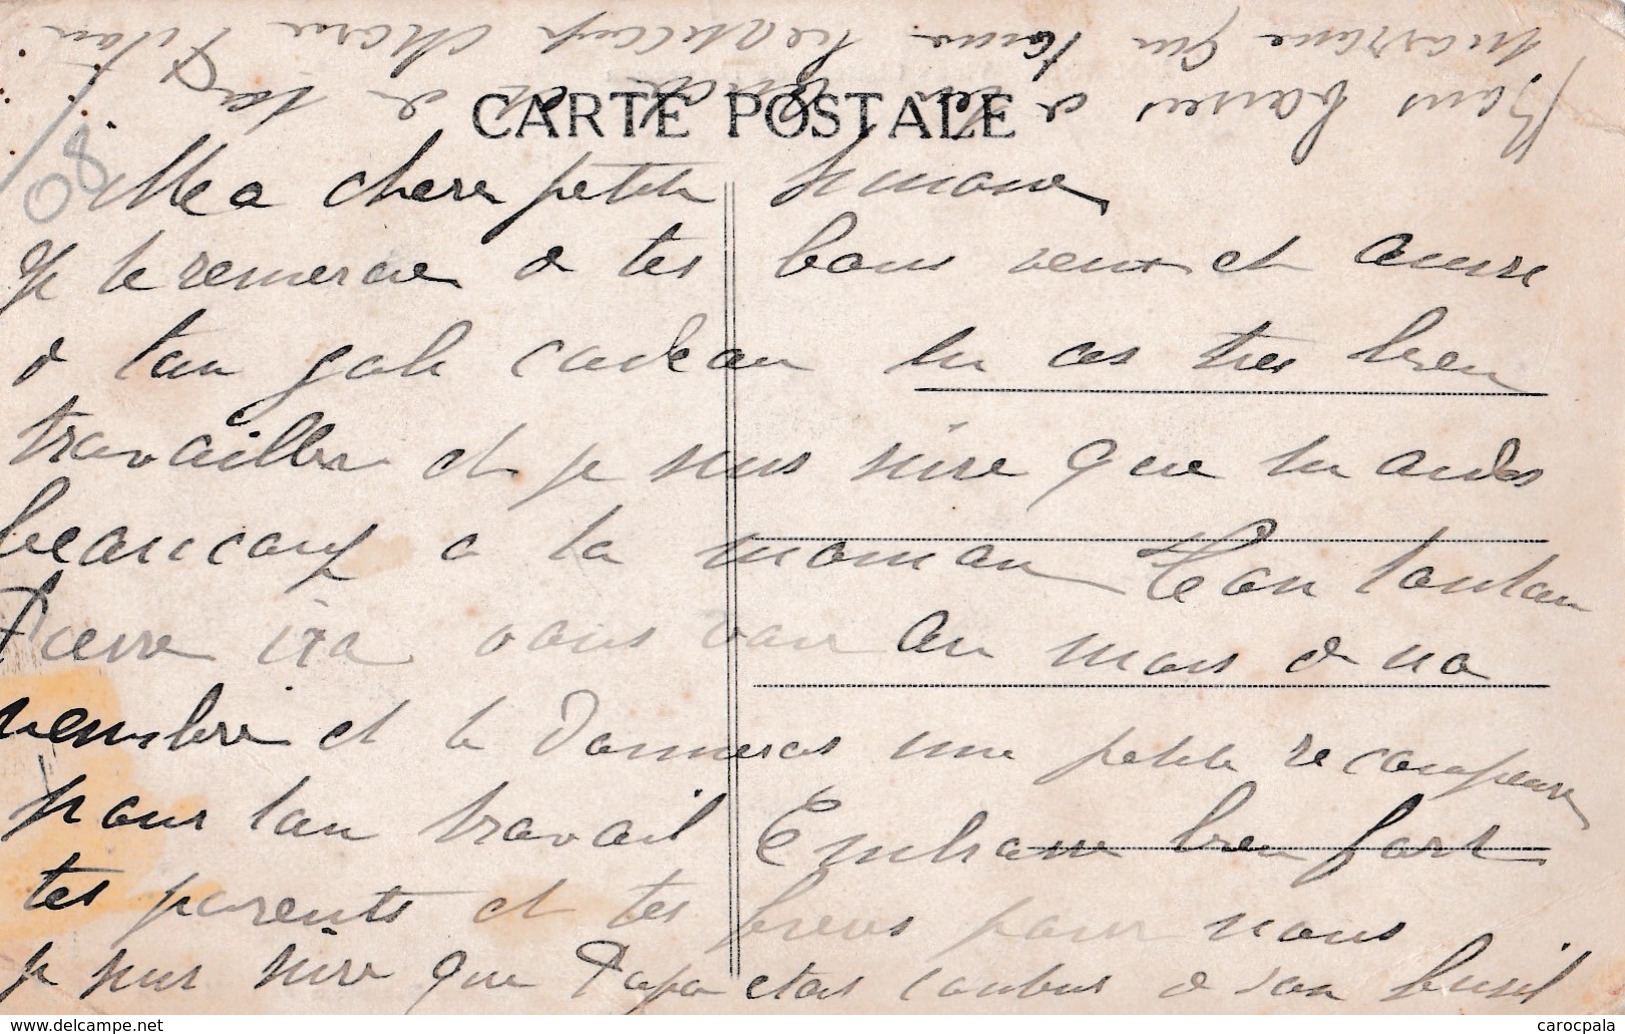 CARTE POSTALE
80
Ma chere petite Simone
Je te remercie de tes bons veux et aussi
de ton joli cadeau tu as tres bien
travailler et je suis sure que tu aides
beaucoup a ta maman Ton tonton
Pierre ira vous voir au mois de no
vembre et te donneras une petite recompense
pour ton travail Embrasse bien fort
tes parents et tes freres pour nous
je suis sure que Papa etais contens de son fusil
Bons baisers de ton
marraine qui taime beaucoup chere
carocpala